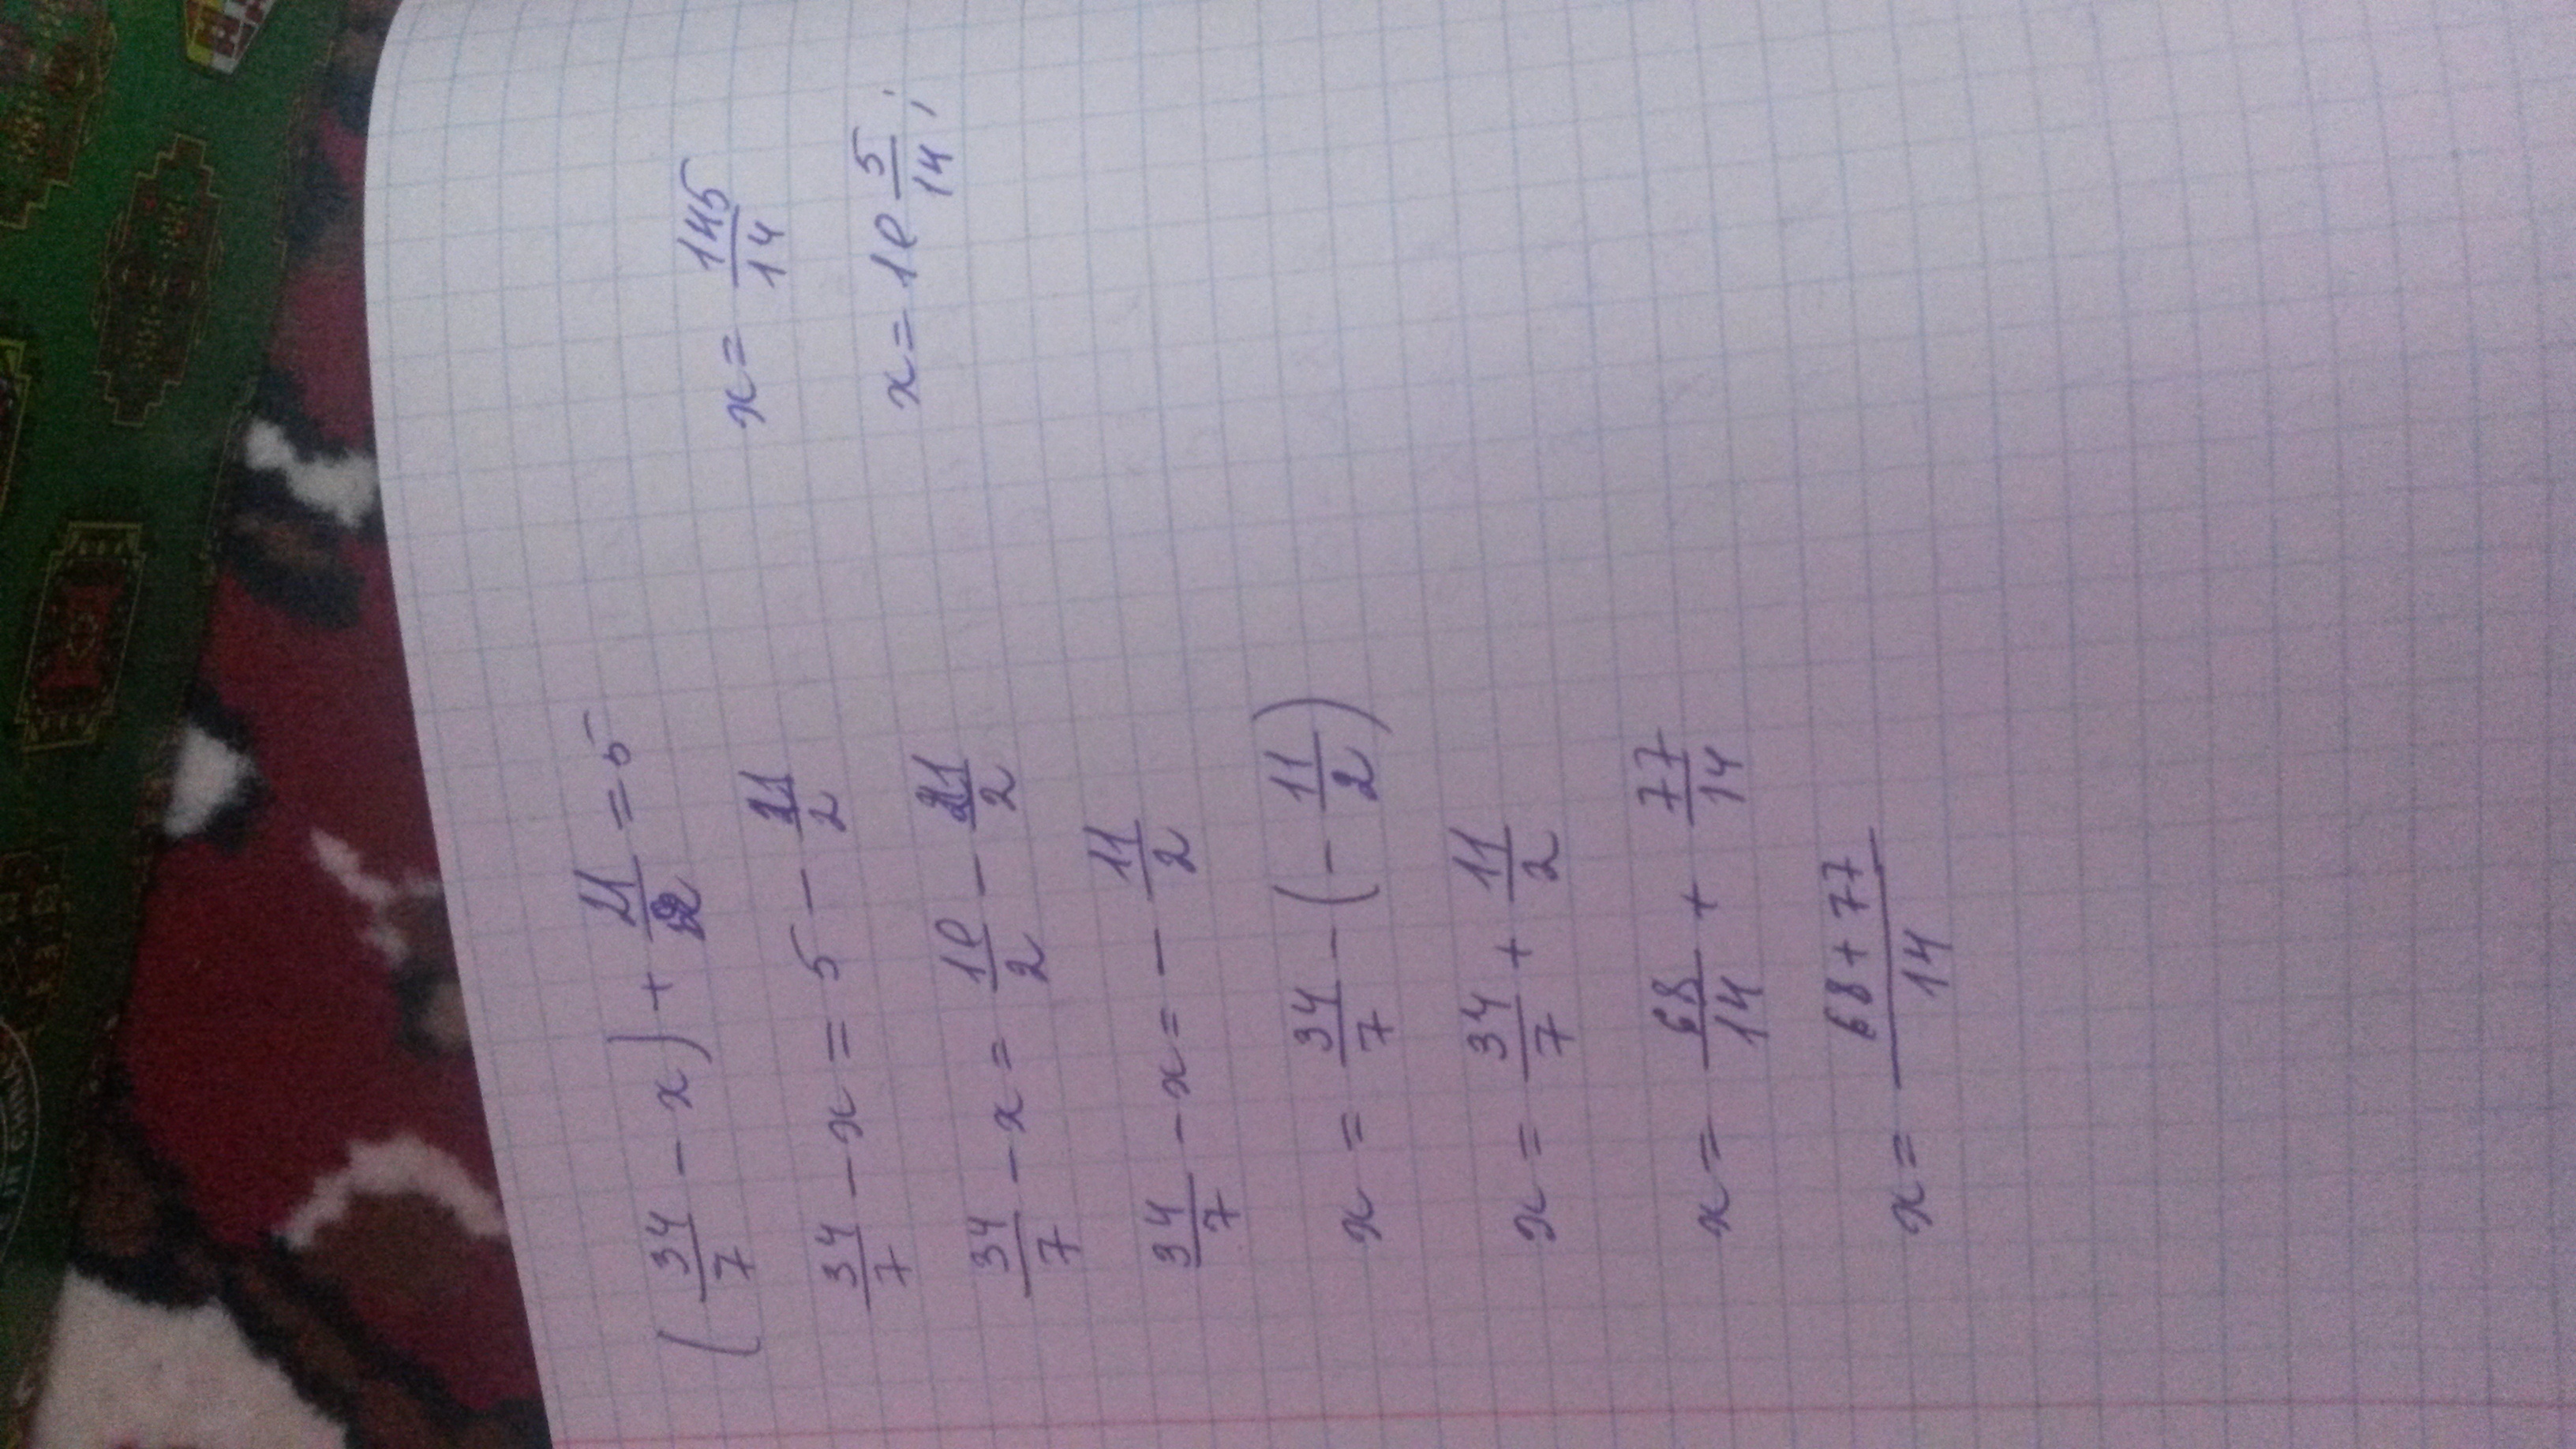 (34/7 - x) + 21/2 = 5
34/7 - x = 5 - 21/2
34/7 - x = 10/2 - 21/2
34/7 - x = - 11/2
x = 34/7 - (- 11/2)
x = 34/7 + 11/2
x = 68/14 + 77/14
x = 68+77/14
x = 145/14
x = 10 5/14 ;